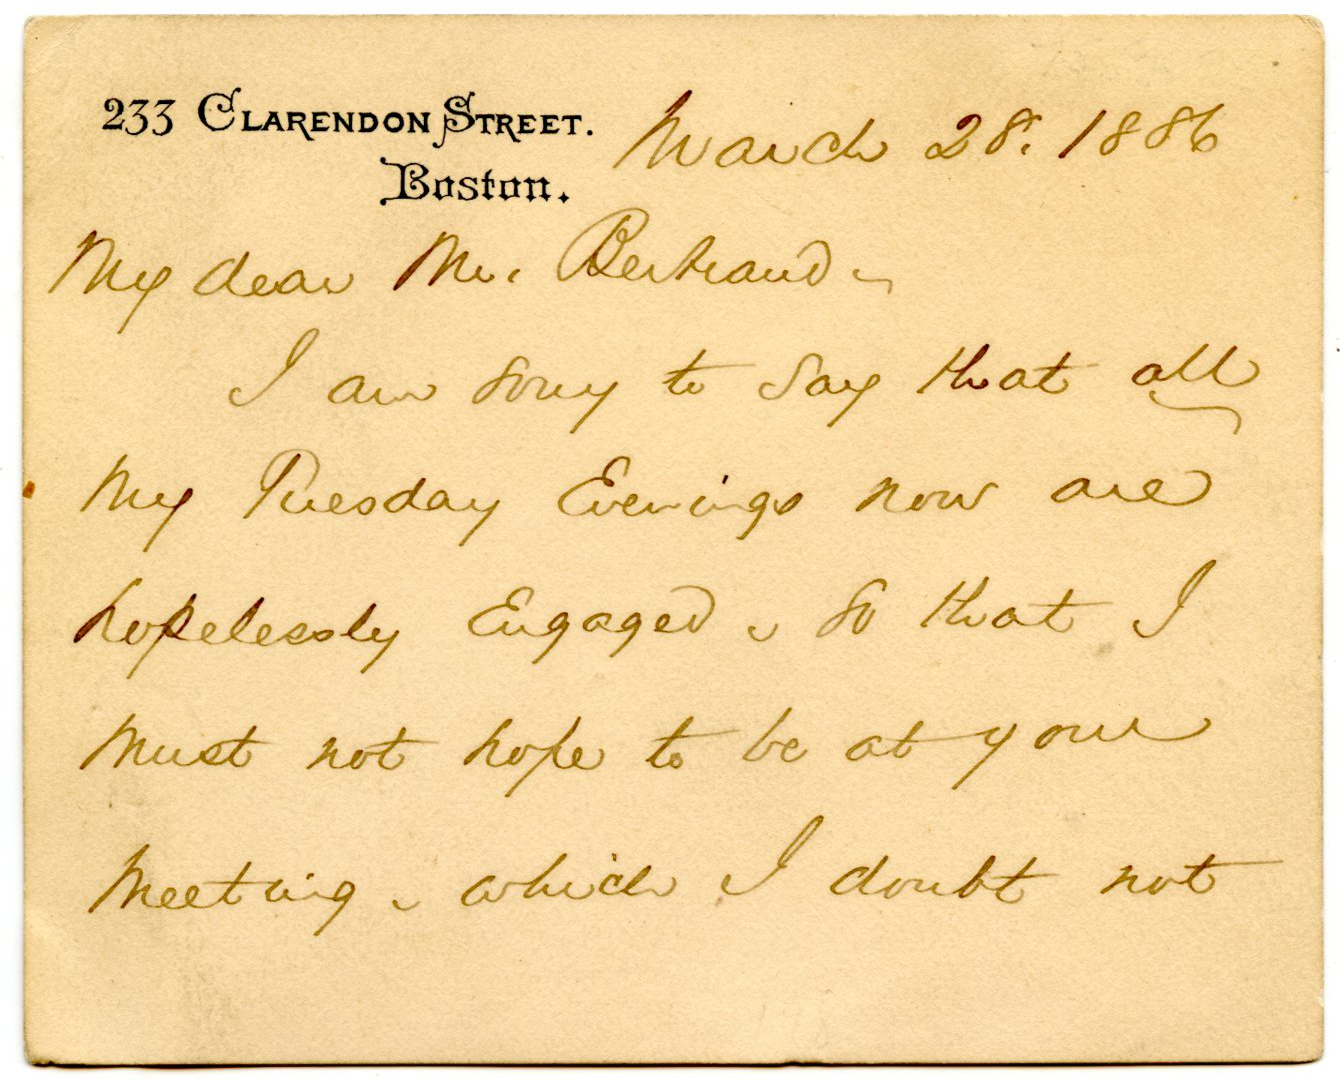 233 CLARENDON STREET.
Boston.
March 28. 1886
My dear Mr. Bertrand,
I am sorry to say that all
my Tuesday Evenings now are
hopelessly Engaged, so that I
must not hope to be at your
meeting, which I doubt not